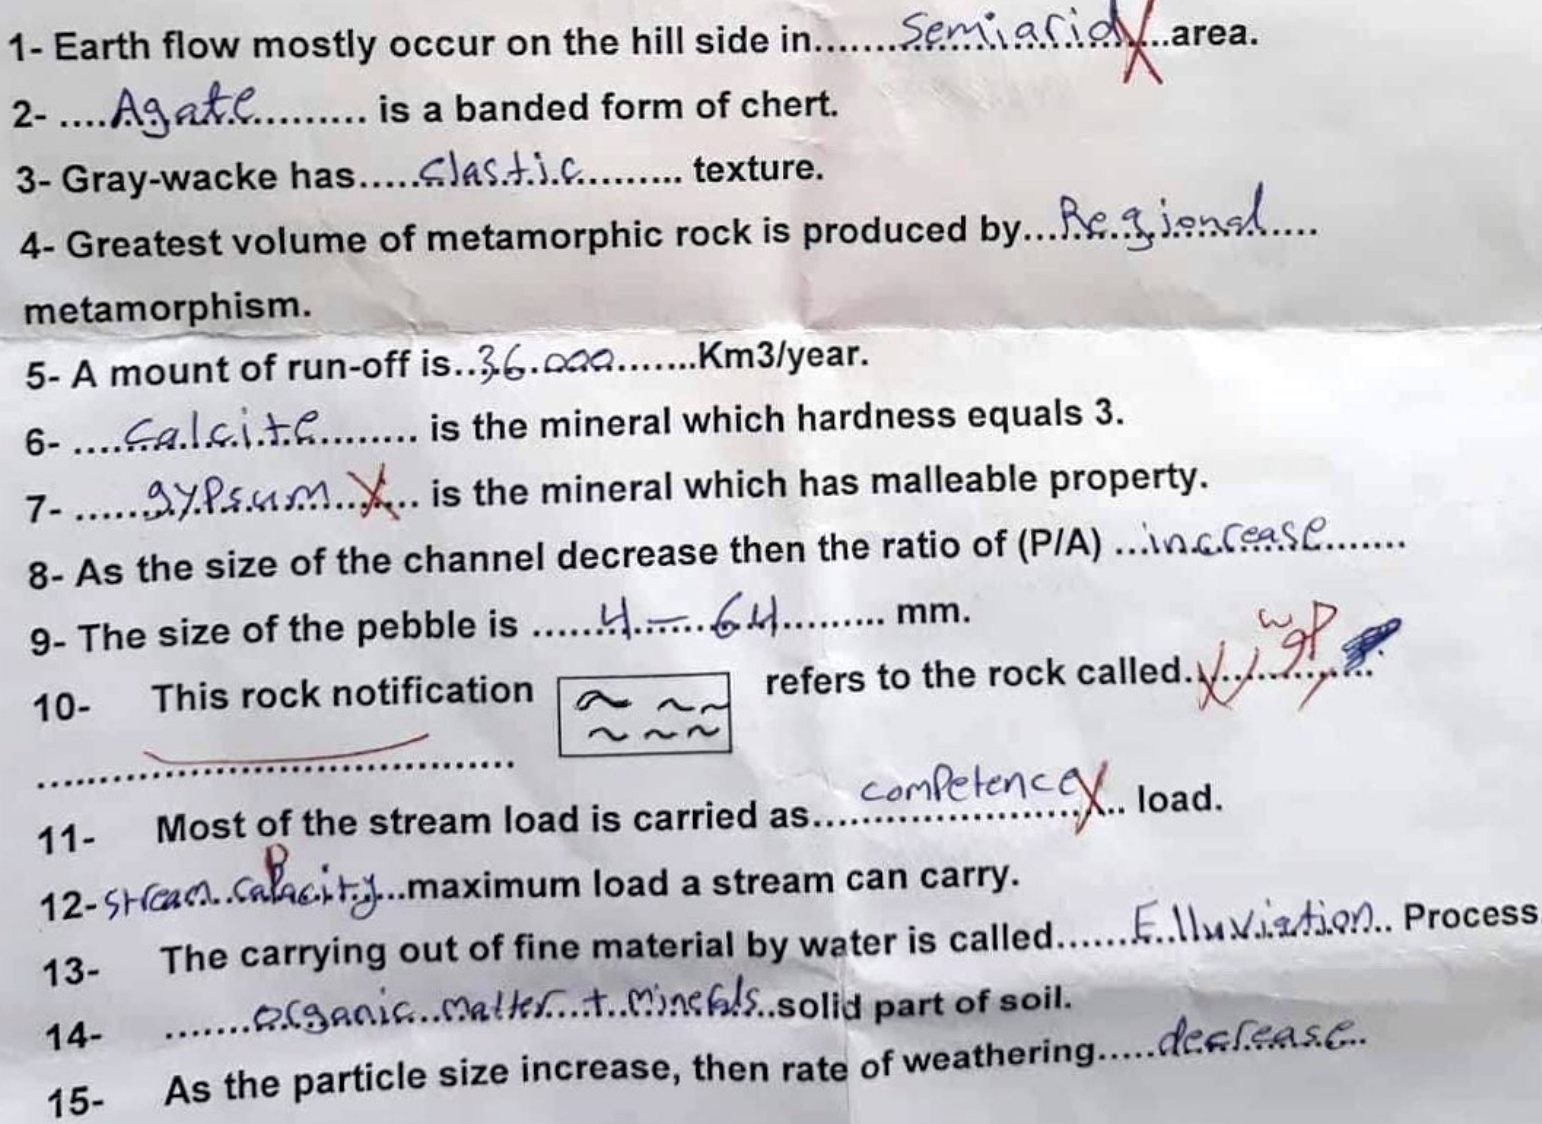 1- Earth flow mostly occur on the hill side in.......Semiarid...area.
2- ....Agate......... is a banded form of chert.
3- Gray-wacke has.....clastic......... texture.
4- Greatest volume of metamorphic rock is produced by...Regional....
metamorphism.
5- A mount of run-off is..36.000.......Km3/year.
6- ....Calcite........ is the mineral which hardness equals 3.
7- ......gypsum..X... is the mineral which has malleable property.
8- As the size of the channel decrease then the ratio of (P/A) ...increase.......
9- The size of the pebble is .......4-64......... mm.
10- This rock notification refers to the rock called..............
......................................
11- Most of the stream load is carried as....competence X... load.
12- stream capacity...maximum load a stream can carry.
13- The carrying out of fine material by water is called......Elluviation.. Process
14- .......organic matter + minerals..solid part of soil.
15- As the particle size increase, then rate of weathering.....decrease..